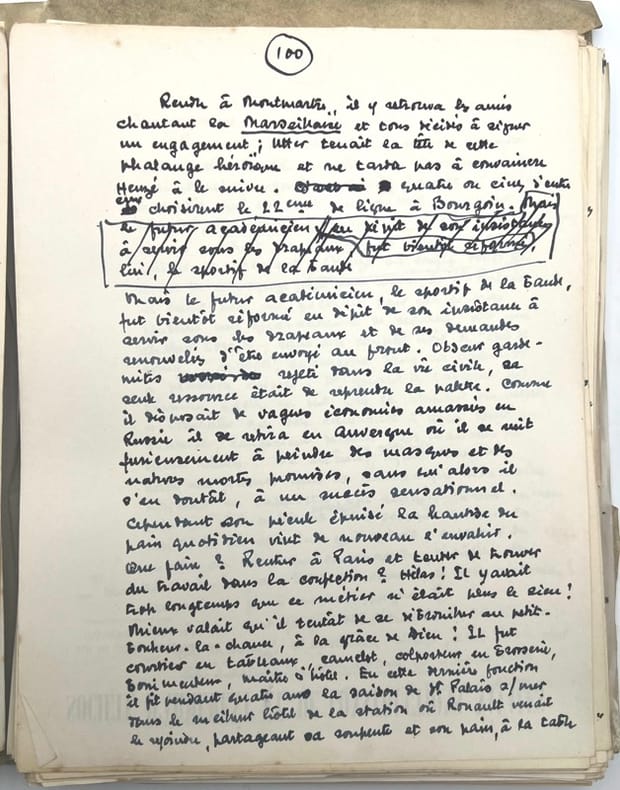 100
Rendu à Montmartre, il y retrouva les amis
chantant la Marseillaise et tous décidés à signer
un engagement ; Utter tenait la tête de cette
phalange héroïque et ne tarda pas à convaincre
Heuzé à le suivre. quatre ou cinq d'entre
eux choisirent le 22ème de ligne à Bourgoin. Mais
le futur académicien, en dépit de son insistance
à servir sous les drapeaux fut bientôt réformé
lui, le sportif de la Bande
Mais le futur académicien, le sportif de la Bande,
fut bientôt réformé en dépit de son insistance à
servir sous les drapeaux et de ses demandes
renouvelées d'être envoyé au front. Obscur garde-
mites rejeté dans la vie civile, sa
seule ressource était de reprendre la palette. Comme
il disposait de vagues économies amassées en
Russie il se retira en Auvergne où il se mit
furieusement à peindre des masques et des
natures mortes promises, sans qu'alors il
s'en doutât, à un succès sensationnel.
Cependant son pécule épuisé la hantise du
pain quotidien vint de nouveau l'envahir.
Que faire ? Rentrer à Paris et tenter de trouver
du travail dans la confection ? Hélas ! Il y avait
trop longtemps que ce métier n'était plus le sien !
Mieux valait qu'il tentât de se débrouiller au petit-
bonheur-la-chance, à la grâce de Dieu ! Il fut
courtier en tableaux, camelot, colporteur en brosserie,
bonimenteur, maître d'hôtel. En cette dernière fonction
il fit pendant quatre ans la saison de St Palais s/mer
dans le meilleur hôtel de la station où Ronault venait
le rejoindre, partageant sa soupente et son pain, à la table